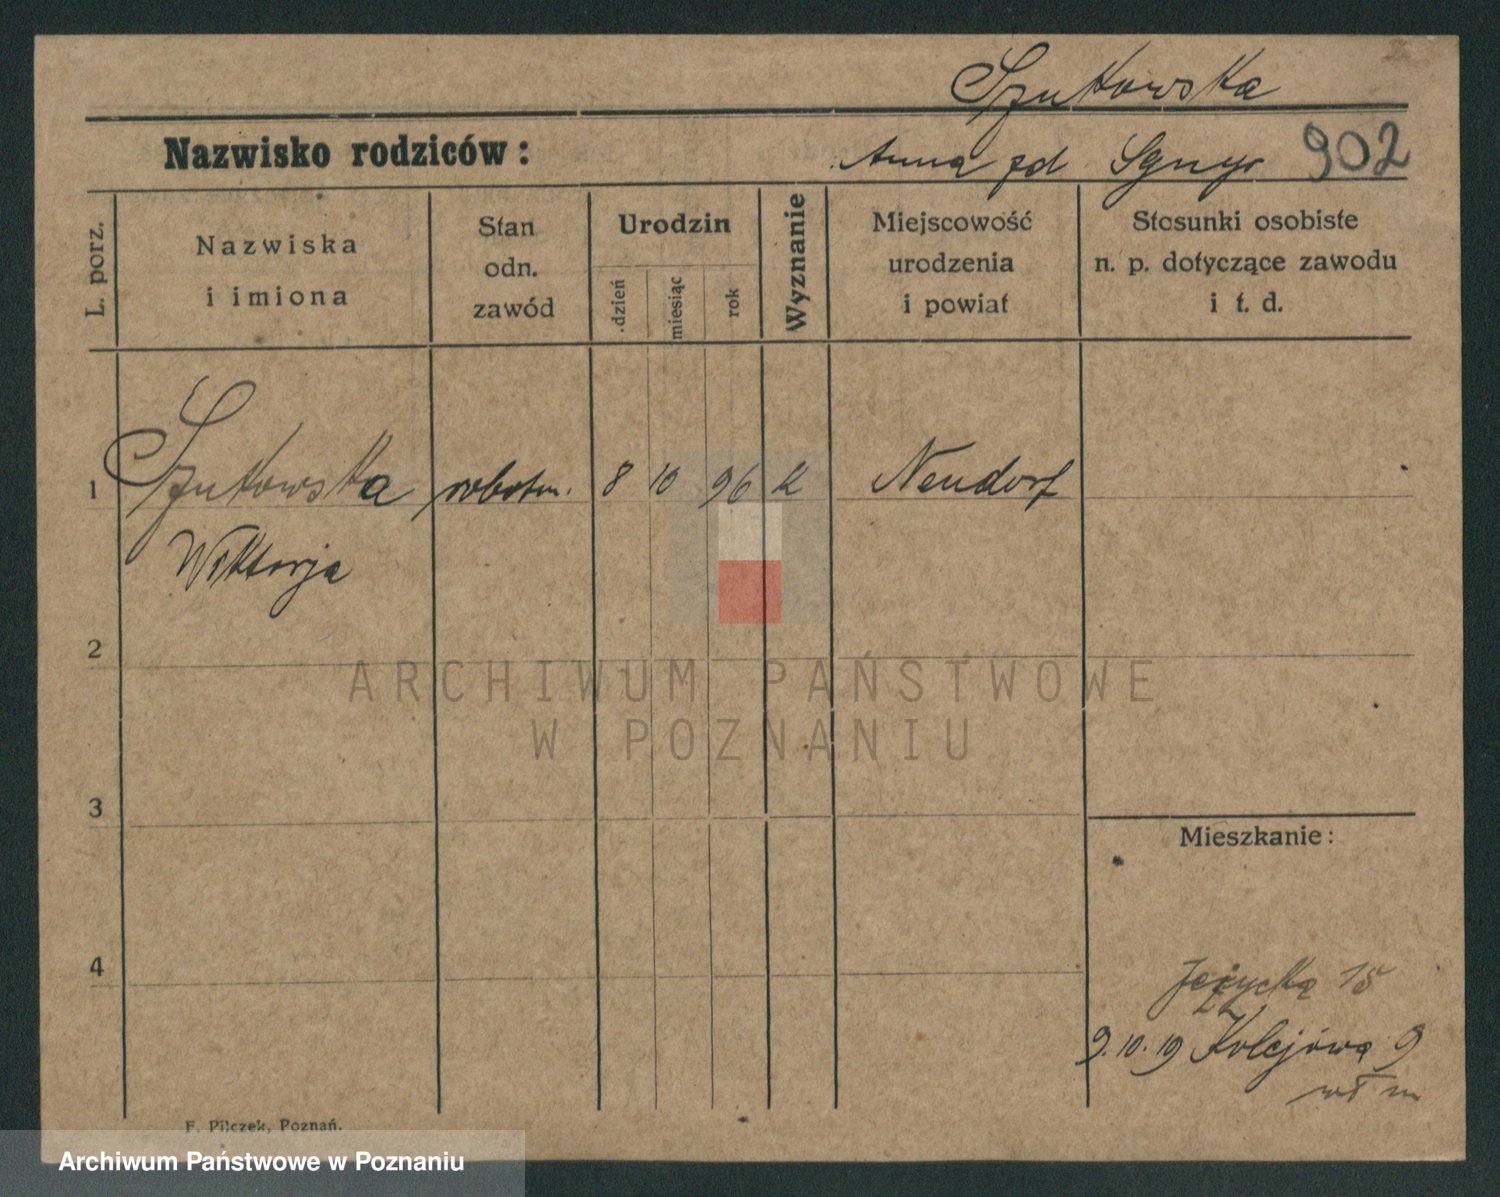 Szutowska
Nazwisko rodziców:
Anna zd Sgnyr 902
L. porz.
Nazwiska
i imiona
Stan
odn.
zawód
Urodzin
dzień
miesiąc
rok
Wyznanie
Miejscowość
urodzenia
i powiat
Stosunki osobiste
n. p. dotyczące zawodu
i t. d.
1 Szutowska robotn. 8 10 96 k Neudorf
Wiktorja
2
ARCHIWUM PAŃSTWOWE
W POZNANIU
3
Mieszkanie:
4
Jeżycka 15
9.10.19 Kolejowa 9
F. Pilczek, Poznań.
Archiwum Państwowe w Poznaniu